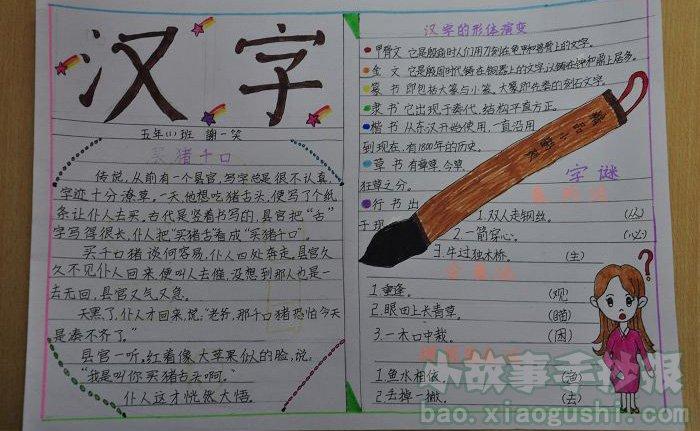 汉字
五年(1)班 谢一笑
买猪千口
传说,从前有一个县官,写字总是很不认真,
字迹十分潦草。一天他想吃猪舌头,便写了个纸
条让仆人去买。古代是竖着书写的,县官把“舌”
字写得很长,仆人把“买猪舌”看成“买猪千口”。
买千口猪谈何容易,仆人四处奔走。县官久
久不见仆人回来,便叫人去催,没想到那人也是一
去无回,县官又气又急。
天黑了,仆人才回来,说:“老爷,那千口猪恐怕今天
是凑不齐了。”
县官一听,红着像大苹果似的脸,说:
“我是叫你买猪舌头啊。”
仆人这才恍然大悟。
汉字的形体演变
甲骨文 它是殷商时人们用刀刻在龟甲和兽骨上的文字。
金 文 它是殷周时代铸在铜器上的文字,以铸在钟和鼎上居多。
篆 书 即包括大篆与小篆。大篆即
隶 书 它出现于秦代,结构平直方正。
楷 书 从东汉开始使用,一直沿用
到现在,有1800年的历史。
草 书 有章草 今草
狂草之分。
行 书 出
于
字谜
1.双人走钢丝。 (丛)
2.一箭穿心。 (必)
3.牛过独木桥。 (生)
1.重逢。 (观)
2.眼田上长青草。 (瞄)
3.一木口中栽。 (困)
1.鱼水相依。 (渔)
2.丢掉一撇。 (去)
小故事手抄报
bao.xiaogushi.com